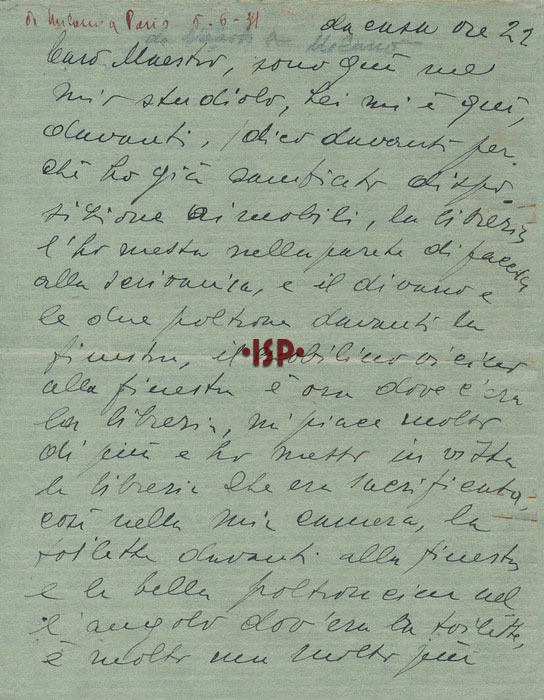 da Milano a Paris 5-6-31
da casa ore 22
Caro Maestro, sono qui nel
mio studiolo, Lei mi è qui,
davanti, dico davanti per
chè ho già cambiato dispo
sizione ai mobili, la libreria
l'ho messa nella parete di faccia
alla scrivania, e il divano e
le due poltrone davanti la
finestra, il mobilino vicino
•ISP•
alla finestra è ora dove c'era
la libreria, mi piace molto
di più e ho messo in vista
la libreria che era sacrificata,
così nella mia camera, la
toilette davanti alla finestra
e la bella poltroncina nel
l'angolo dov'era la toilette,
è molto ma molto più